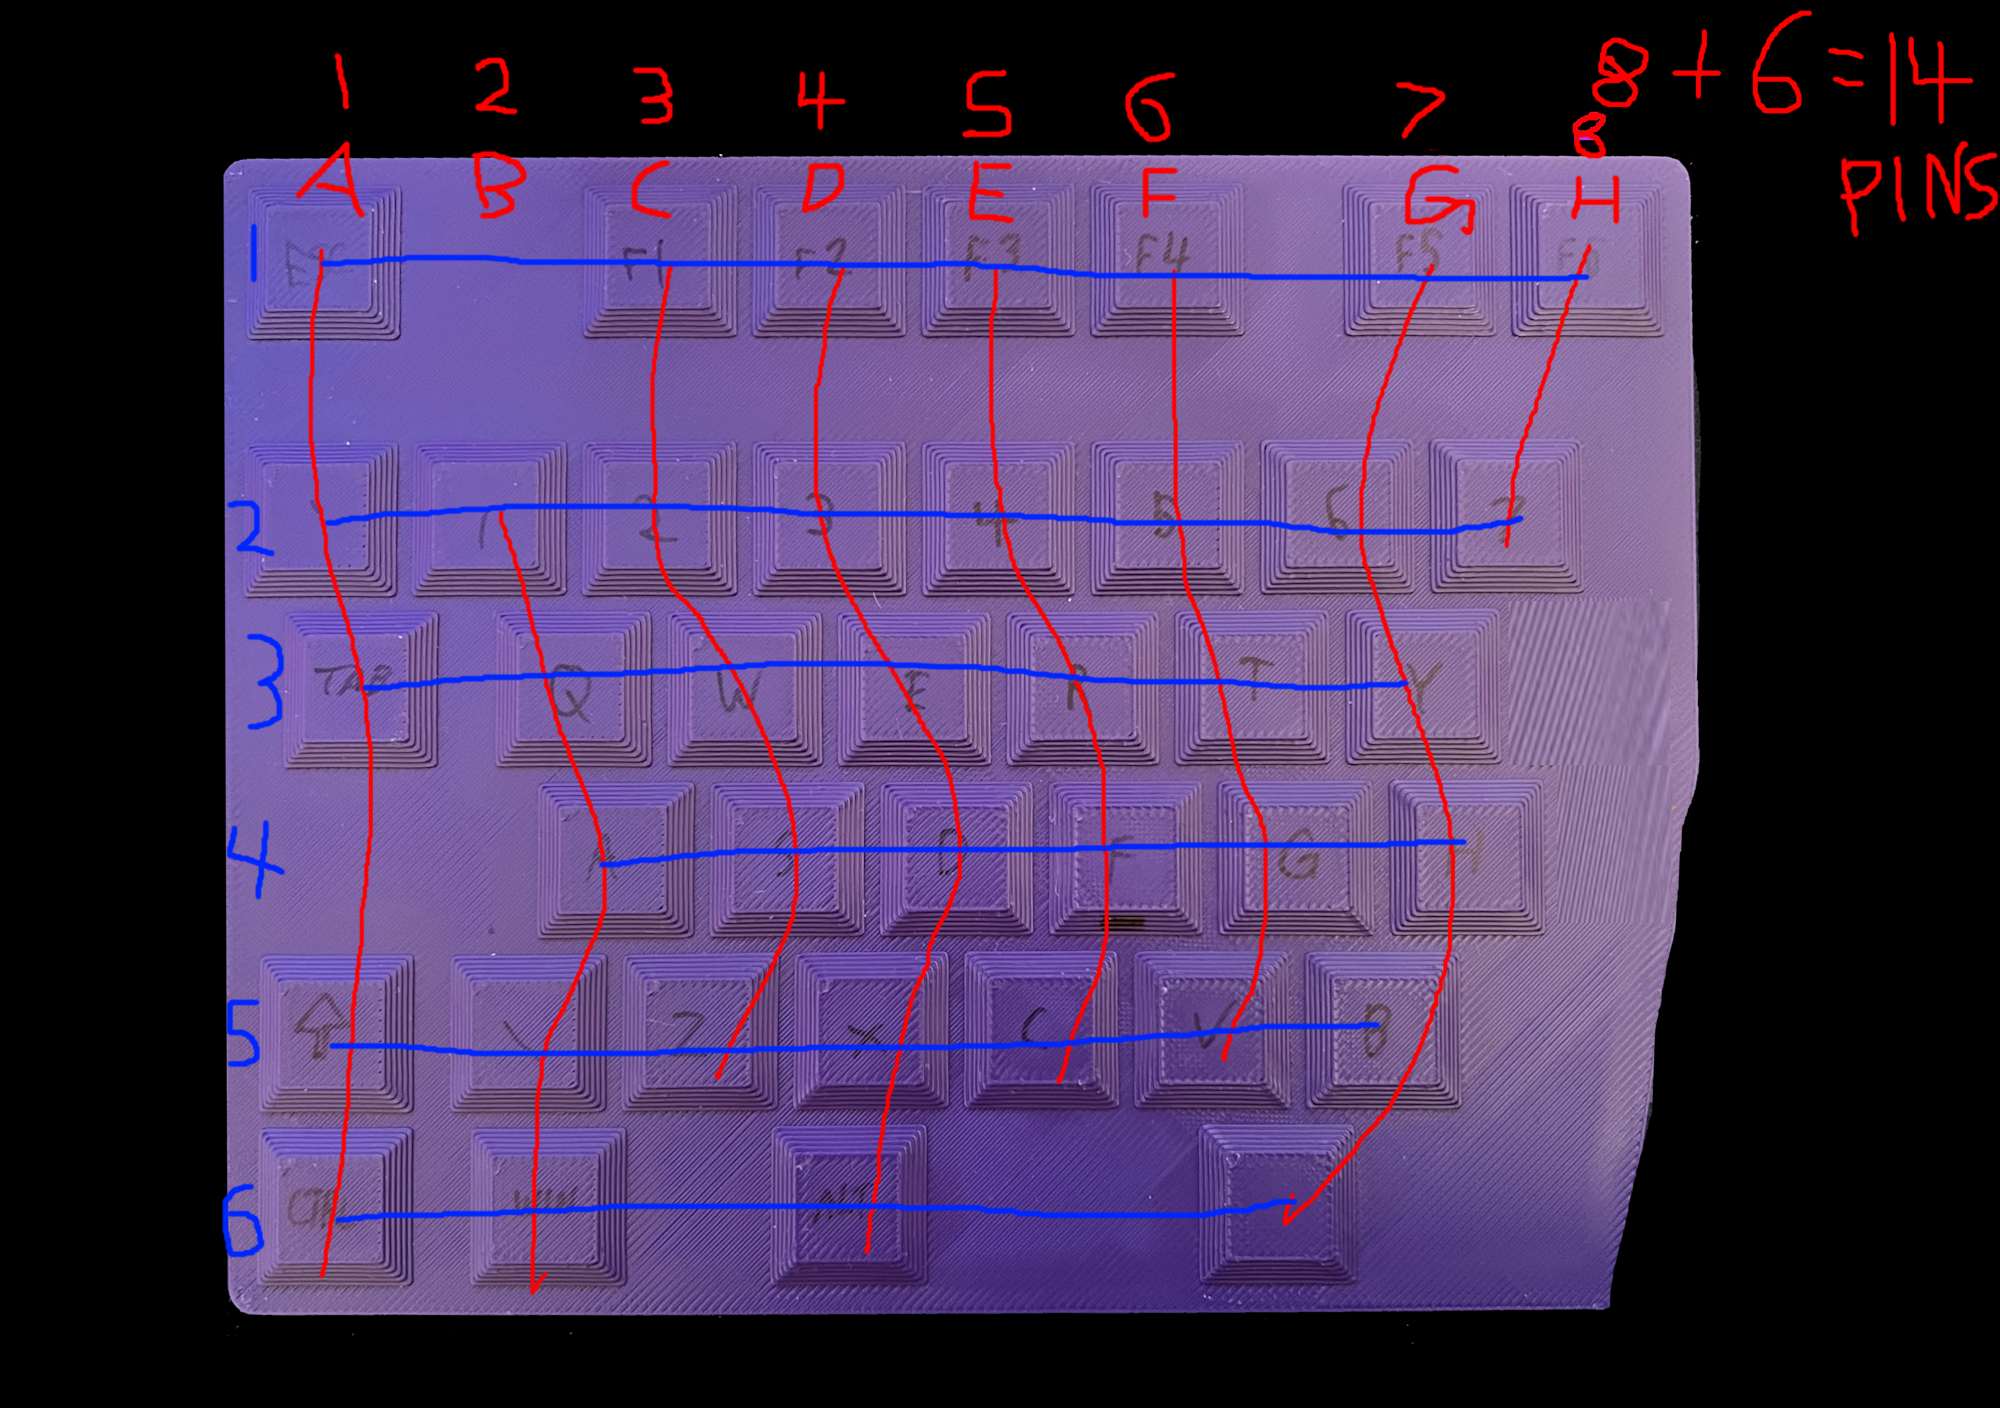 1 2 3 4 5 6 7 8 8 + 6 = 14
A B C D E F G H PINS
1 ESC F1 F2 F3 F4 F5 F6
2 1 2 3 4 5 6 7
3 TAB Q W E R T Y
4 A S D F G H
5 \ Z X C V B
6 CTRL WIN ALT